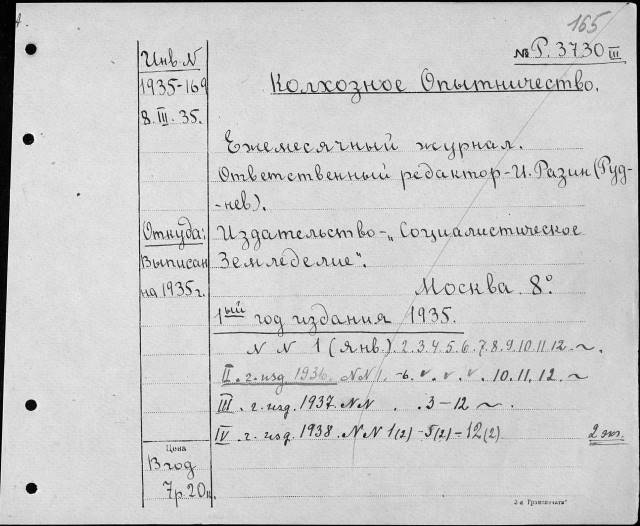 165
№ Р. 3730 III
Инв. N
1935-169
8.III.35.
Колхозное Опытничество.
Ежемесячный журнал.
Ответственный редактор - И. Разин (Руд-
-нев).
Откуда:
Выписан
на 1935 г.
Издательство - „Социалистическое
Земледелие".
Москва. 8°.
1ый год издания 1935.
N N 1 (янв.). 2. 3. 4. 5. 6. 7. 8. 9. 10. 11. 12. ~.
II. г. изд. 1936. N N 1. -6. v. v. v. 10. 11. 12. ~
III. г. изд. 1937. N N . . 3-12 ~.
IV. г. изд. 1938. N N 1(2) -5(2) -12(2) 2 экз.
Цена
В год
7 р. 20 к.